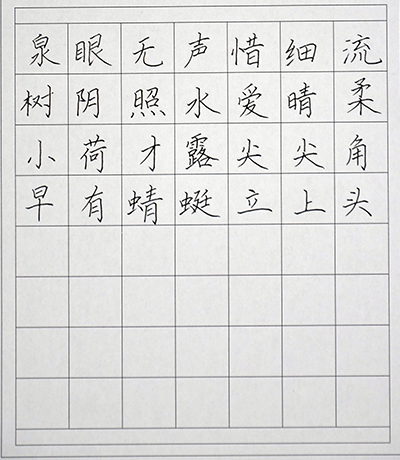 泉眼无声惜细流
树阴照水爱晴柔
小荷才露尖尖角
早有蜻蜓立上头